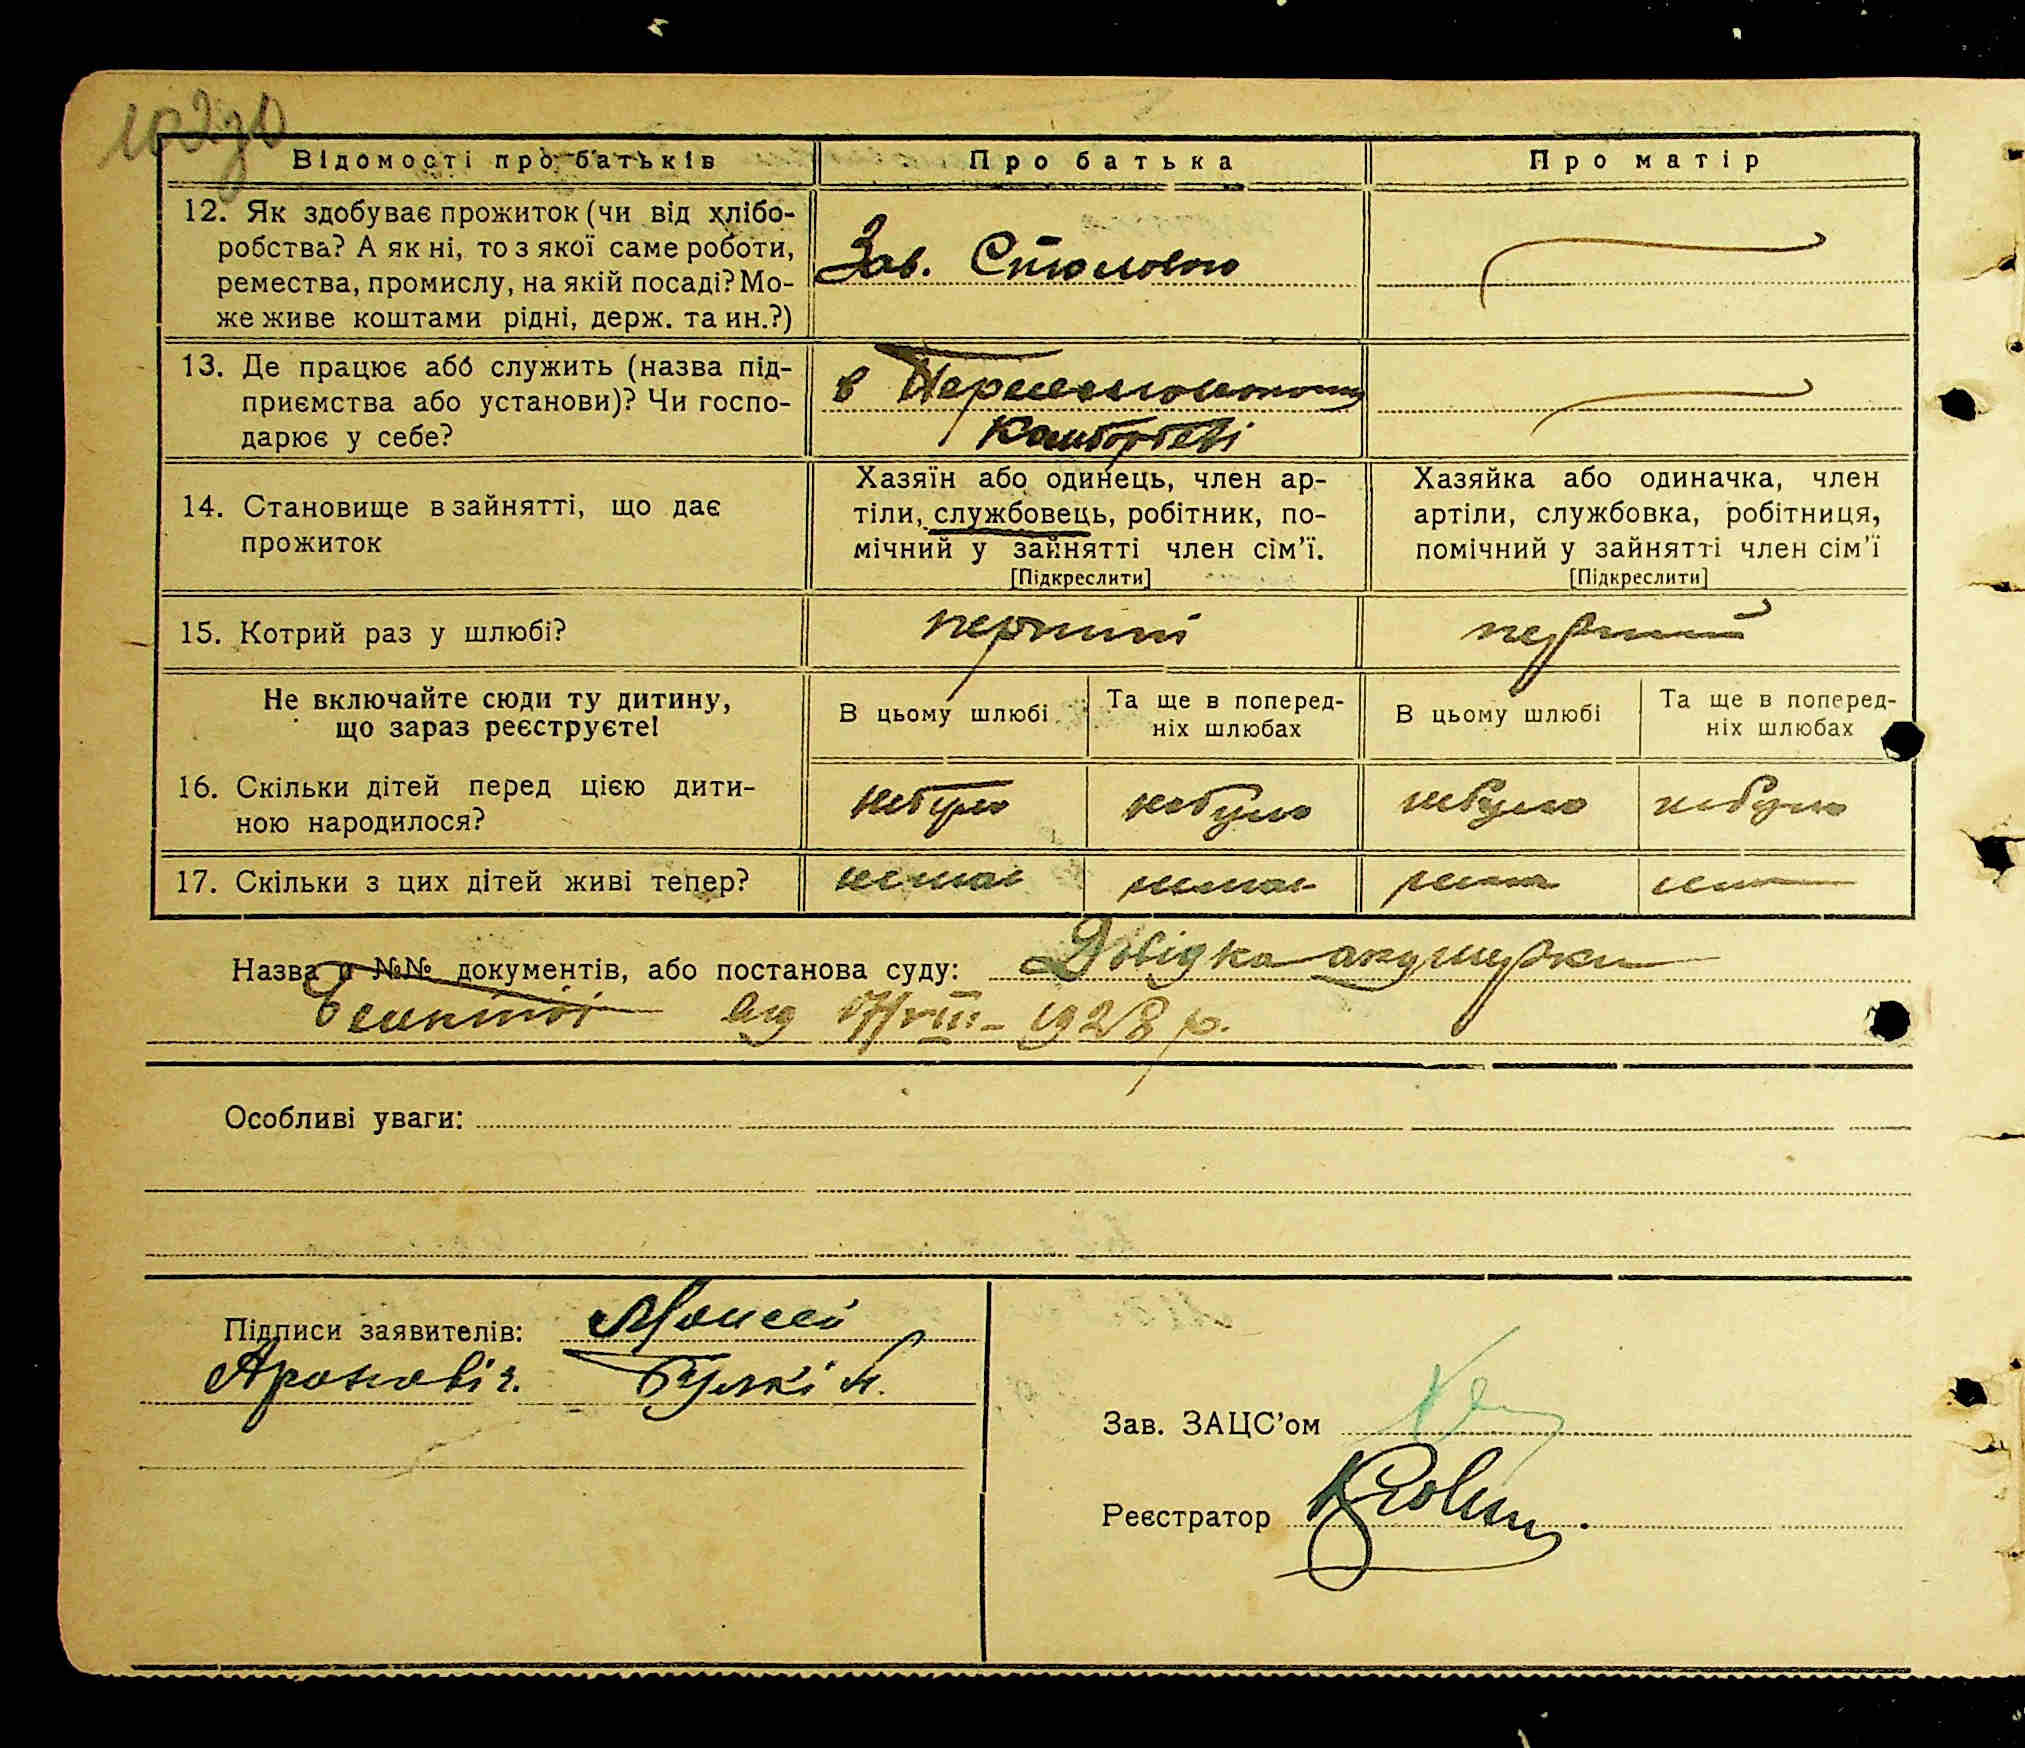 Відомості про батьків
Про батька
Про матір
12. Як здобуває прожиток (чи від хлібо-
робства? А як ні, то з якої саме роботи,
ремества, промислу, на якій посаді? Мо-
же живе коштами рідні, держ. та ин.?)
Зав. Столовою
13. Де працює або служить (назва під-
приємства або установи)? Чи госпо-
дарює у себе?
в
14. Становище в зайнятті, що дає
прожиток
Хазяїн або одинець, член ар-
тіли, службовець, робітник, по-
мічний у зайнятті член сім'ї.
[Підкреслити]
Хазяйка або одиначка, член
артіли, службовка, робітниця,
помічний у зайнятті член сім'ї
[Підкреслити]
15. Котрий раз у шлюбі?
перший
перший
Не включайте сюди ту дитину,
що зараз реєструєте!
В цьому шлюбі
Та ще в поперед-
ніх шлюбах
В цьому шлюбі
Та ще в поперед-
ніх шлюбах
16. Скільки дітей перед цією дити-
ною народилося?
небуло
небуло
небуло
небуло
17. Скільки з цих дітей живі тепер?
немає
немає
Назва и №№ документів, або постанова суду: Довідка акушерки
від VIII - 1928 р.
Особливі уваги:
Підписи заявителів: Моисей
Аронович. Булкін.
Зав. ЗАЦС'ом
Реєстратор